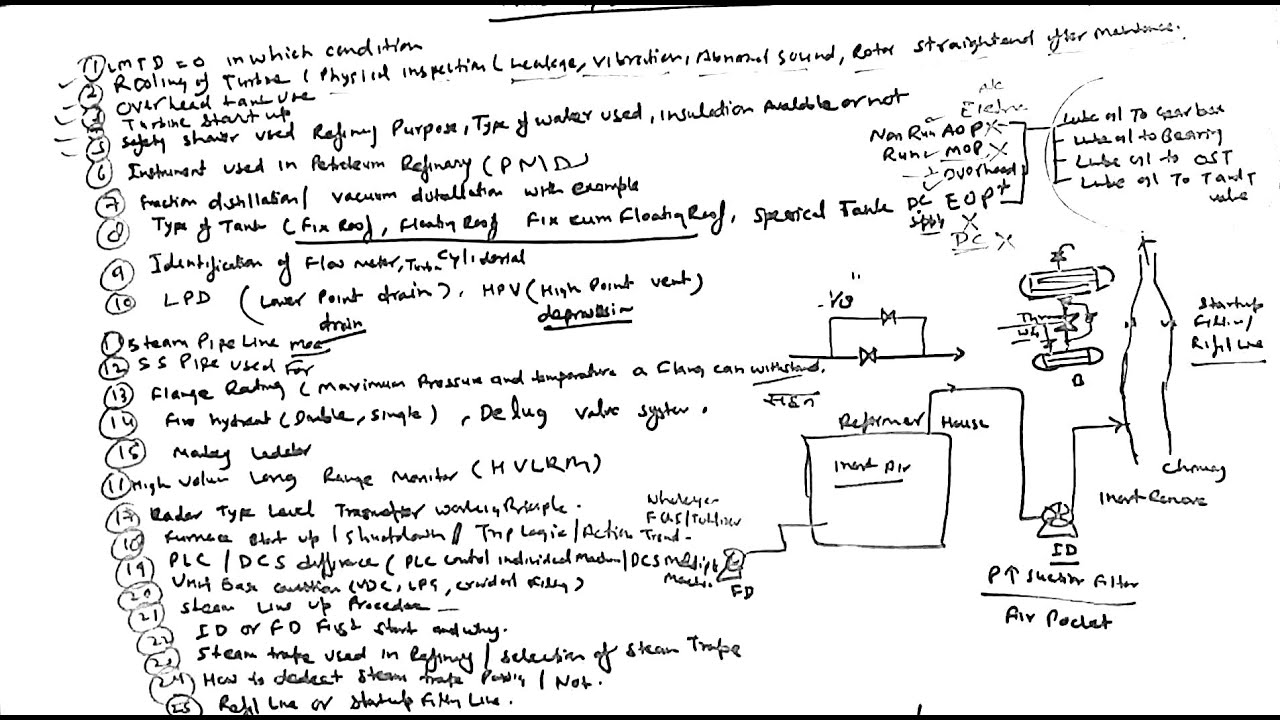 ① LMTD = 0 in which condition
② Rolling of Turbine (Physical inspection (Leakage, vibration, Abnormal sound, Rotor straightend after
③ Overhead tank use
④ Turbine Start up
⑤ Safety shower used Refinery Purpose, Type of water used, insulation Available or not
⑥ Instrument used in Petroleum Refinary (PNID)
⑦ Fraction distillation / vacuum distillation with example
⑧ Type of Tank (Fix Roof, Floating Roof Fix cum Floating Roof, Sperical Tank
Cylidorial
⑨ Identification of Flow meter, Turbn
⑩ LPD (Lower Point drain), HPV (High Point vent)
drain
depression
⑪ Steam Pipe Line
⑫ SS Pipe used For
⑬ Flange Rating (Maximum Pressure and temperature a Flang can withstand.
सहन
⑭ Fire hydrent (Double, Single), Delug valve system.
⑮
⑪ High Volum Long Range Monitor (HVLRM)
⑰ Radar Type Level Trasmetter working Priciple.
⑱ Furnace Start up / Shutdown / Trip Logic / Action Trend-
⑲ PLC / DCS diffrence (PLC control individual Machin / DCS Multiple
Machin.
⑳ Unit Base question (VDC, LPG,
㉑ Steam Line up Procedure -
㉒ ID or FD First Start and why.
㉓ Steam trape used in Refinery / selection of Steam Trape
㉔ How to dedect Steam trape Passing / Not.
㉕ Refil Line or Startup Filling Line.
Non Run AOP X
Run MOP X
Overhead
DC EOP
Supply
X
DC X
Lube oil To Gearbox
Lube oil to Bearing
Lube oil to OST
Lube oil To TandT
valve
Startup
Filling/
Refil Line
B
Reformer House
Inert Air
FD
ID
Chimney
Inert Remove
P↑ Suction Filter
Air Pocket